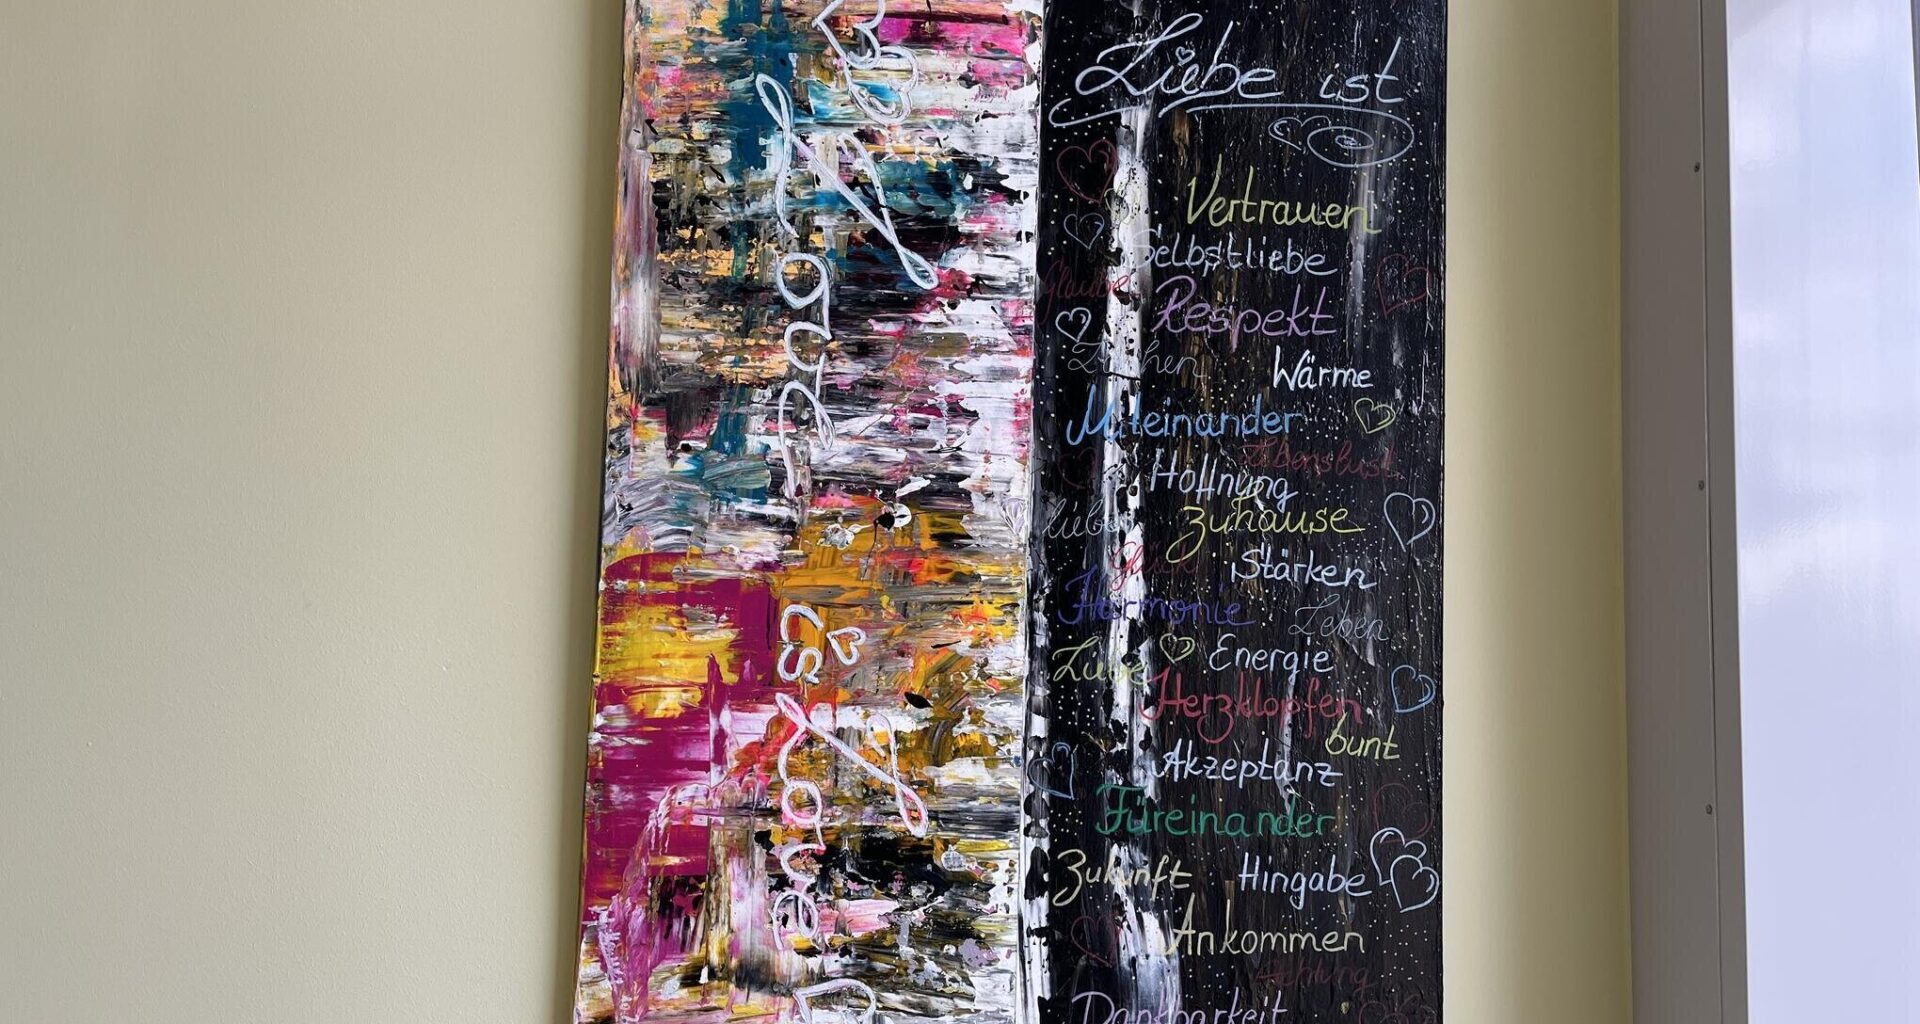 Love is Love
Liebe ist
Vertrauen
Selbstliebe
Glaube
Respekt
Lachen
Wärme
Miteinander
Lebenslust
Hoffnung
lieben Zuhause
Glück Stärken
Harmonie Leben
Liebe Energie
Herzklopfen
bunt
Akzeptanz
Füreinander
Zukunft Hingabe
Ankommen
Achtung
Dankbarkeit